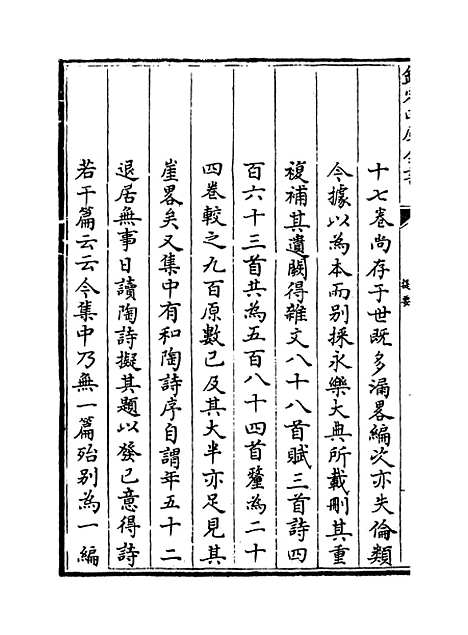 欽定四庫全書
提要
十七卷尚存于世既多漏畧編次亦失倫類
今據以為本而别採永樂大典所載刪其重
複補其遺闕得雜文八十八首賦三首詩四
百六十三首共為五百八十四首釐為二十
四卷較之九百原數已及其大半亦足見其
崖畧矣又集中有和陶詩序自謂年五十二
退居無事日讀陶詩擬其題以發已意得詩
若干篇云云今集中乃無一篇殆别為一編